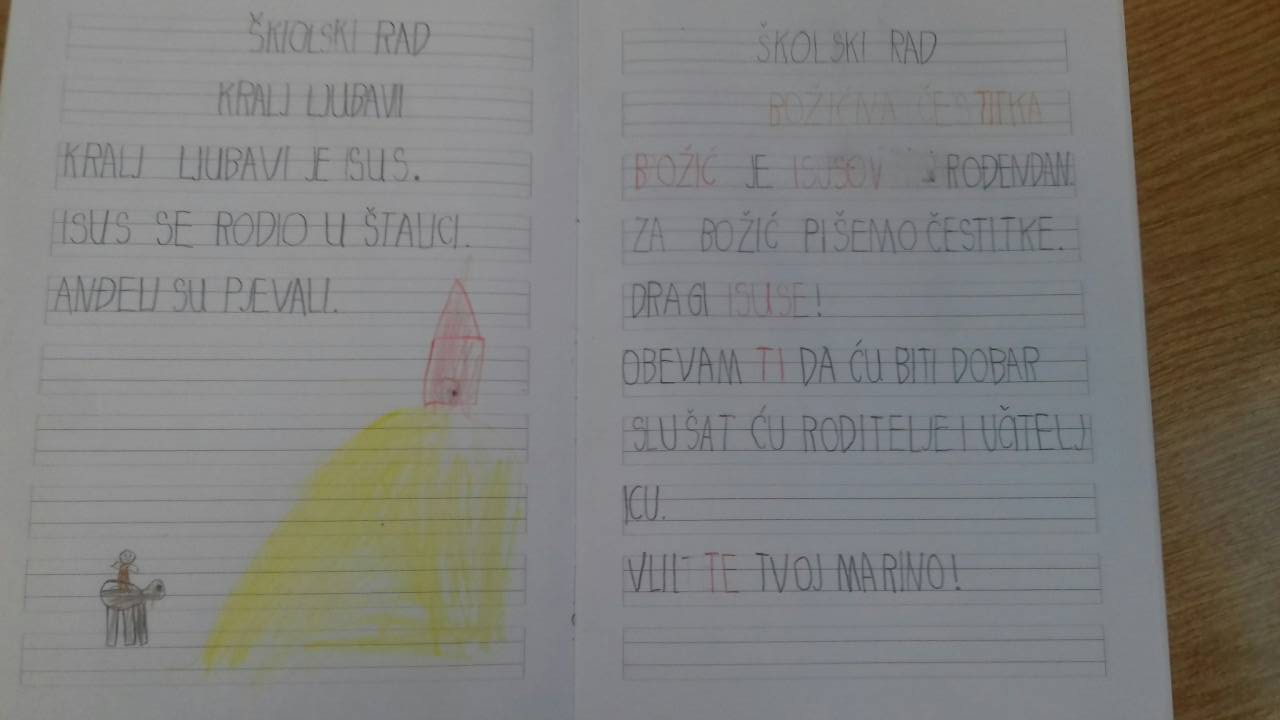 ŠKIOLSKI RAD
KRALJ LJUBAVI
KRALJ LJUBAVI JE ISUS.
ISUS SE RODIO U ŠTALICI.
ANĐELI SU PJEVALI.
ŠKOLSKI RAD
BOŽIĆNA ČESTITKA
BOŽIĆ JE ISUSOV ROĐENDAN.
ZA BOŽIĆ PIŠEMO ČESTITKE.
DRAGI ISUSE!
OBEVAM TI DA ĆU BITI DOBAR
SLUŠAT ĆU RODITELJE I UČITELJ
ICU.
TE TVOJ MARINO!